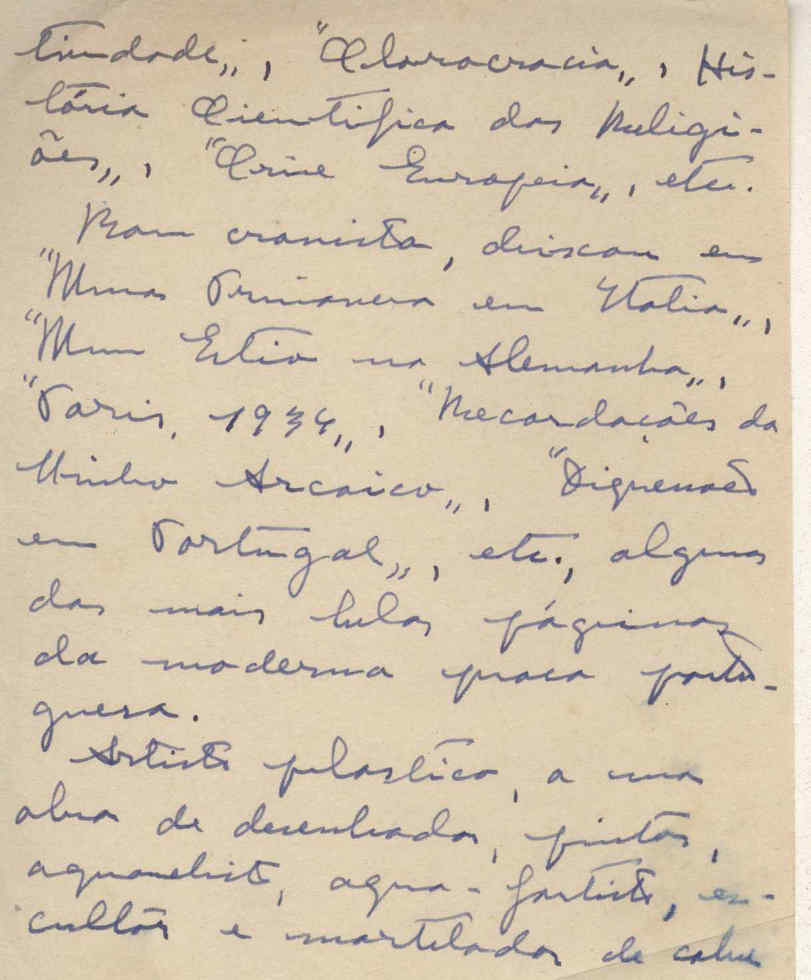 „, "„, His-
tória Cientifica das Religi-
ões„, "Crise Europeia„, etc.
Bom cronista, deixou em
"Uma Primavera em Italia„,
"Um Estio na Alemanha„,
"Paris, 1934„, "Recordações do
Minho Arcaico„, "Digressões
em Portugal„, etc., algumas
das mais belas páginas
da moderna prosa portu-
guesa.
Artista plastico, a sua
obra de desenhador, pintor,
aguarelista, agua-fortista, es-
cultor e martelador de cobre